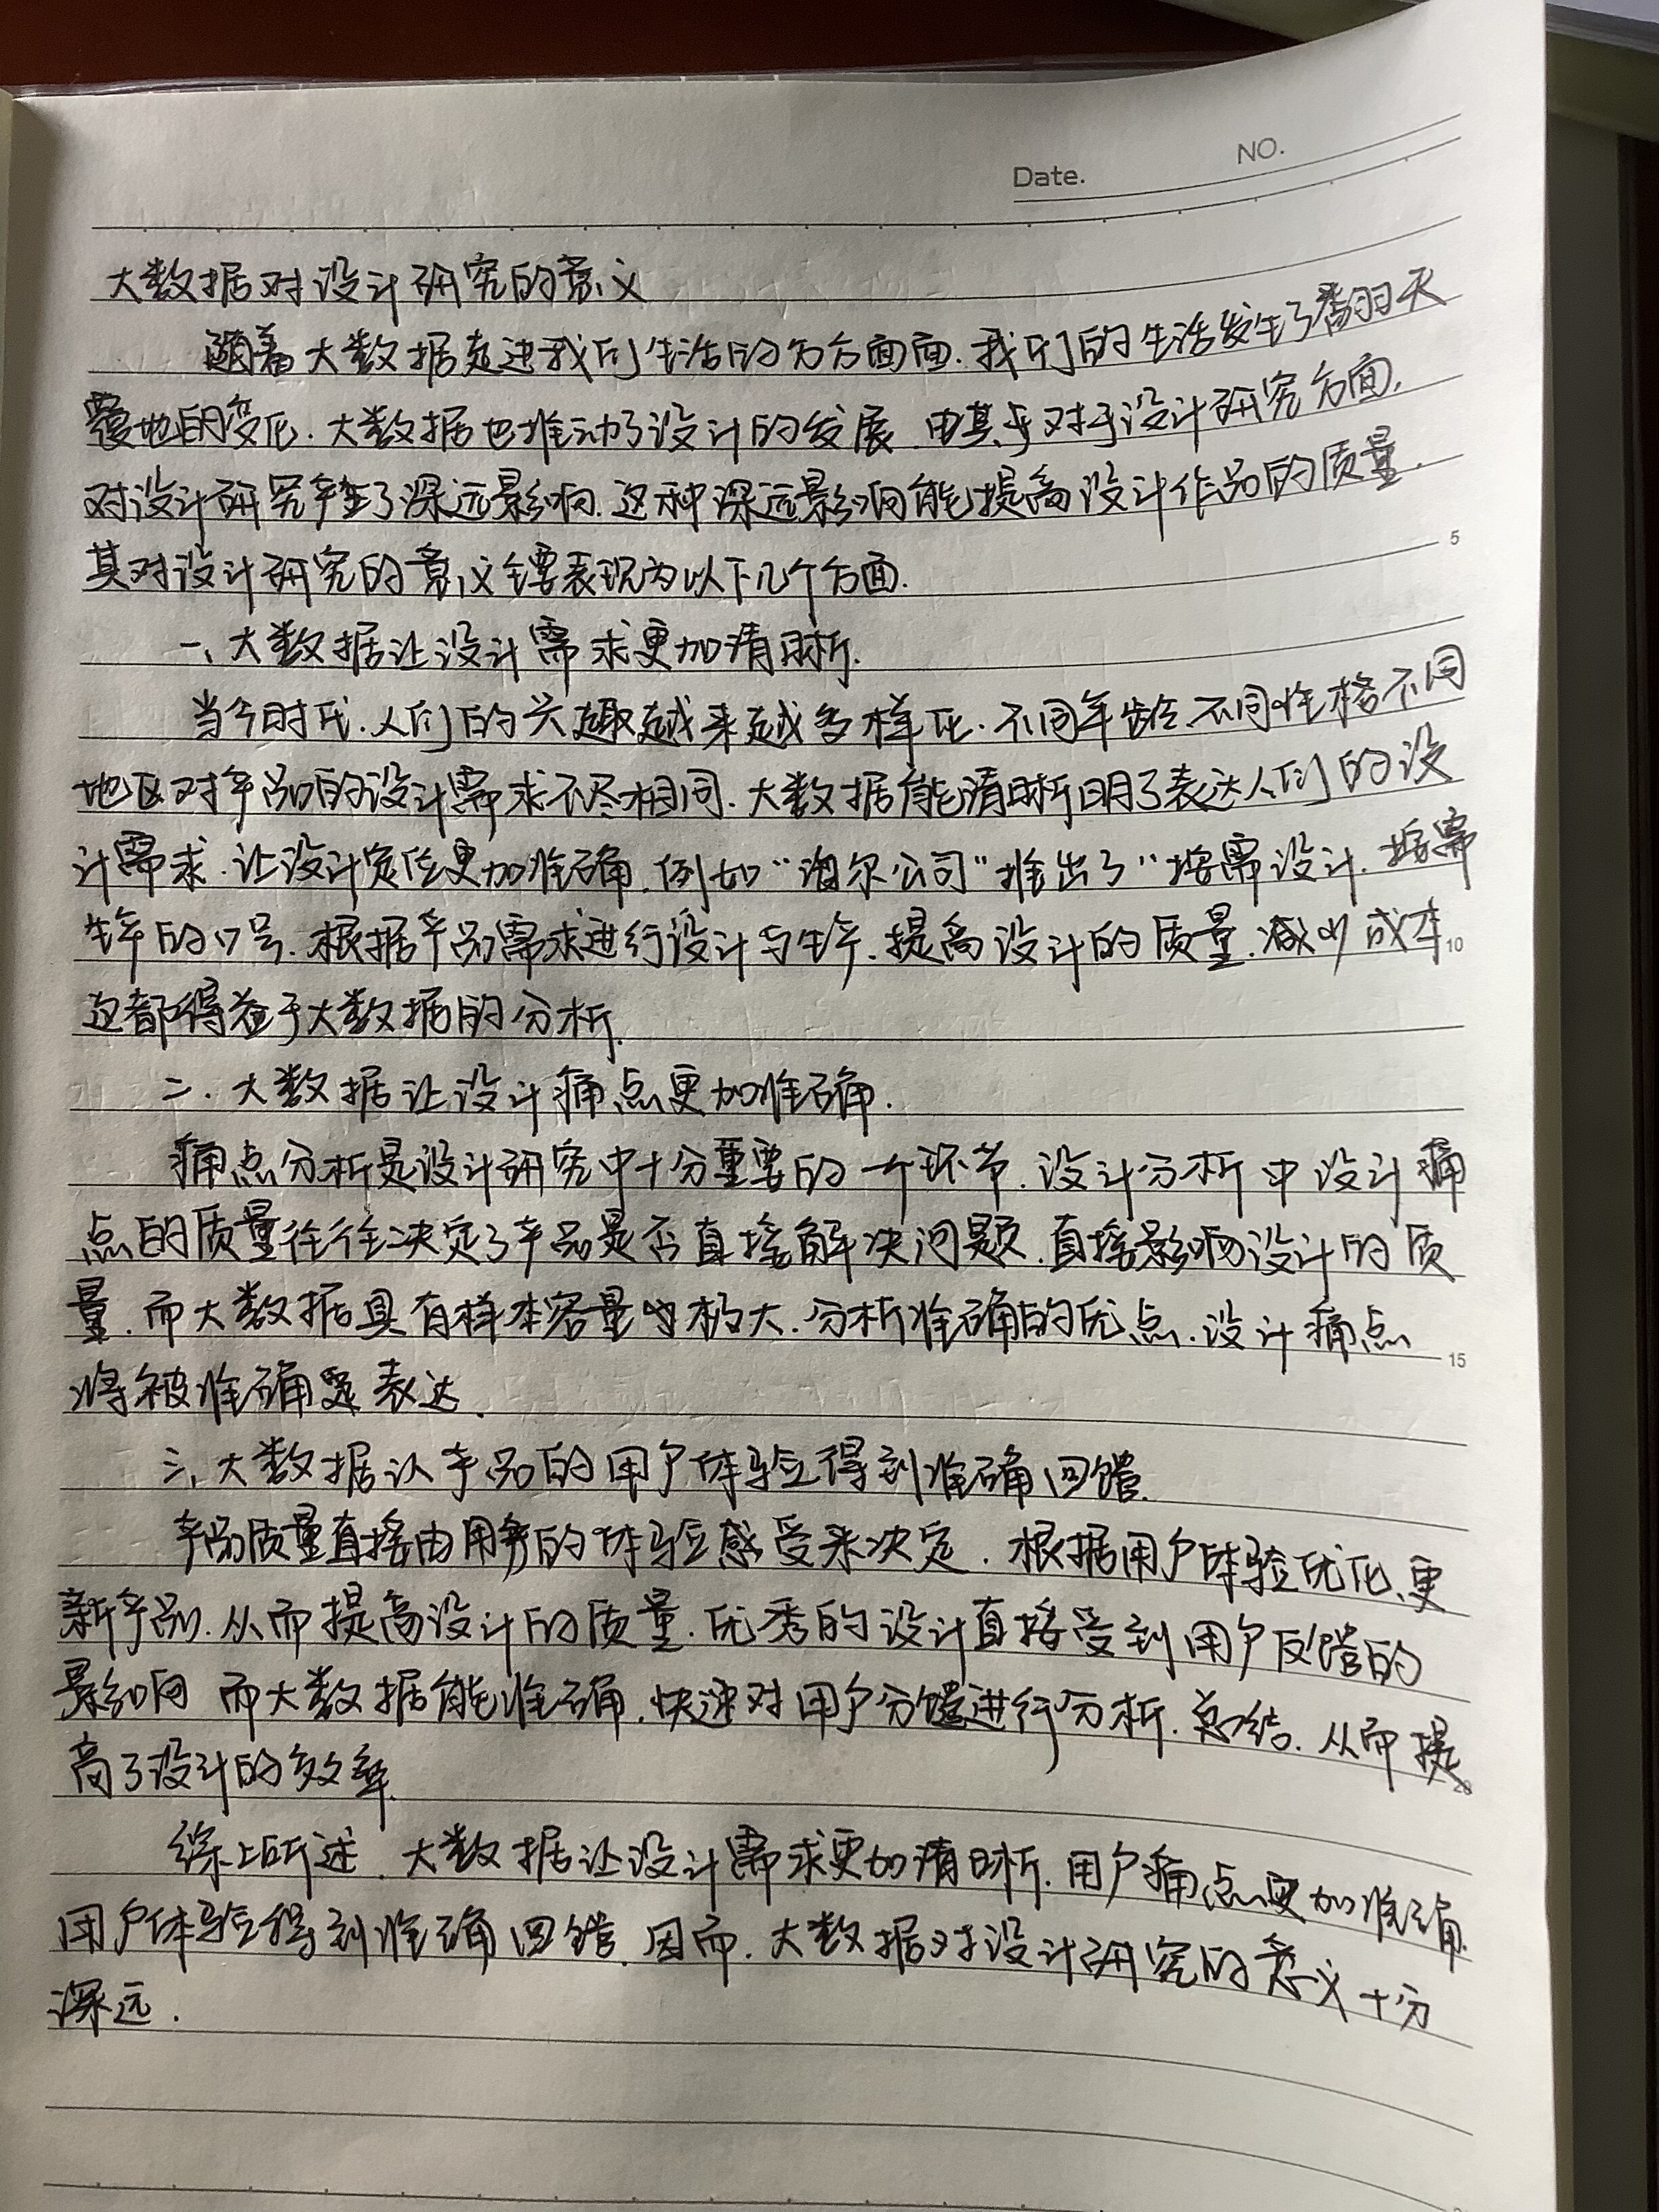 Date.
NO.
大数据对设计研究的意义
随着大数据走进我们生活的方方面面.我们的生活发生了翻天
覆地的变化.大数据也推动了设计的发展.尤其乎对于设计研究方面,
对设计研究产生了深远影响.这种深远影响能提高设计作品的质量.
其对设计研究的意义主要表现为以下几个方面.
一、大数据让设计需求更加清晰.
当今时代.人们的兴趣越来越多样化.不同年龄不同性格不同
地区对产品的设计需求不尽相同.大数据能清晰明了表达人们的设
计需求.让设计定位更加准确.例如“海尔公司”推出了“按需设计.按需
生产的口号.根据产品需求进行设计与生产.提高设计的质量.减少成本
5
10
这都得益于大数据的分析.
二.大数据让设计痛点更加准确.
痛点分析是设计研究中十分重要的一个环节.设计分析中设计痛
点的质量往往决定了产品是否直接解决问题.直接影响设计的质
量.而大数据具有样本容量大.分析准确的优点.设计痛点
15
将被准确表达.
三、大数据让产品的用户体验得到准确回馈.
产品质量直接由用户的体验感受来决定.根据用户体验优化、更
新产品.从而提高设计的质量.优秀的设计直接受到用户反馈的
影响 而大数据能准确.快速对用户分馈进行分析.总结.从而提
高了设计的效率.
综上所述.大数据让设计需求更加清晰.用户痛点更加准确.
用户体验得到准确回馈.因而.大数据对设计研究的意义十分
深远.